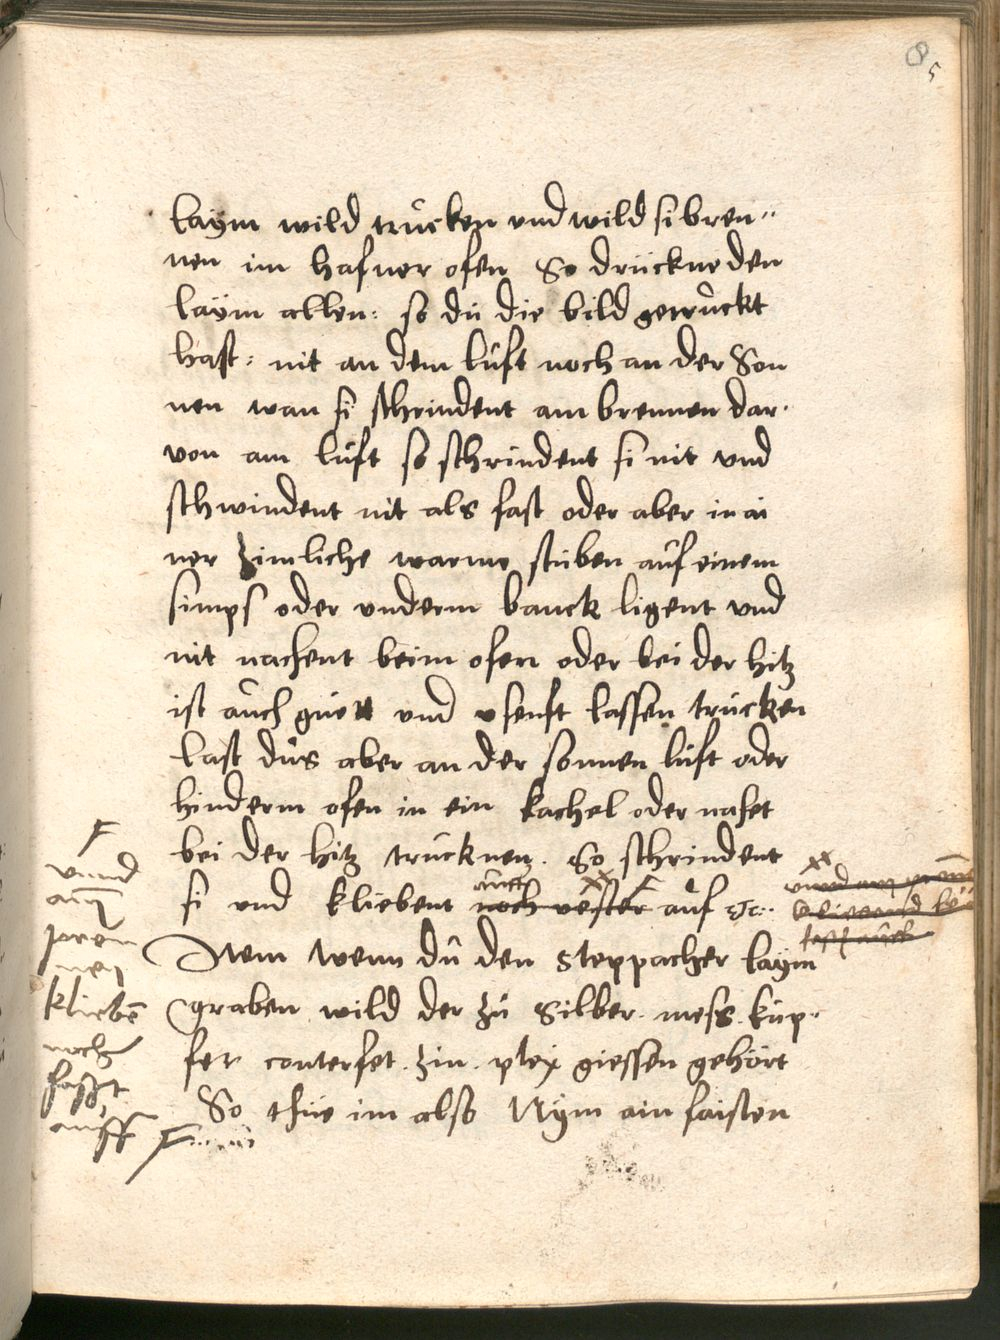 8
5
laÿm wild trucken vnd wild si bren„
nen im hafner ofen So drückne den
laÿm allen: so du die bild getruckt
hast: nit an dem luft noch an der Son
nen wan si schrindent am brennen dar·
von am luft so schrindent si nit vnd
schwindent nit als fast oder aber in ai
ner zimliche warme stuben auf einem
simps oder vnderm banck ligent vnd
nit nachent beim ofen oder bei der hitz
ist auch guett vnd senft lassen trucken
last dus aber an der sonnen luft oder
hinderm ofen in ein kachel oder nahet
bei der hitz trucknen. So schrindent
si vnd kliebent noch vester auf
auch
vnnd
am
prenn
nen
klieben
noch
fasst
auff
Item wenn du den steppacher laÿm
graben wild der zu Silber. mess. kup·
fer conterfet. zin. pleÿ giessen gehört
So thue im also Nÿm ain faisten